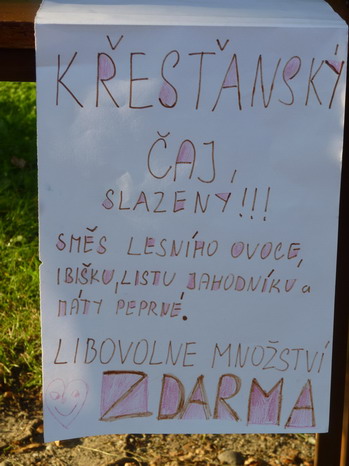 KŘESŤANSKÝ
ČAJ,
SLAZENÝ!!!
SMĚS LESNÍHO OVOCE,
IBIŠKU, LISTU JAHODNÍKU a
MÁTY PEPRNÉ.
LIBOVOLNE MNOŽSTVÍ
ZDARMA